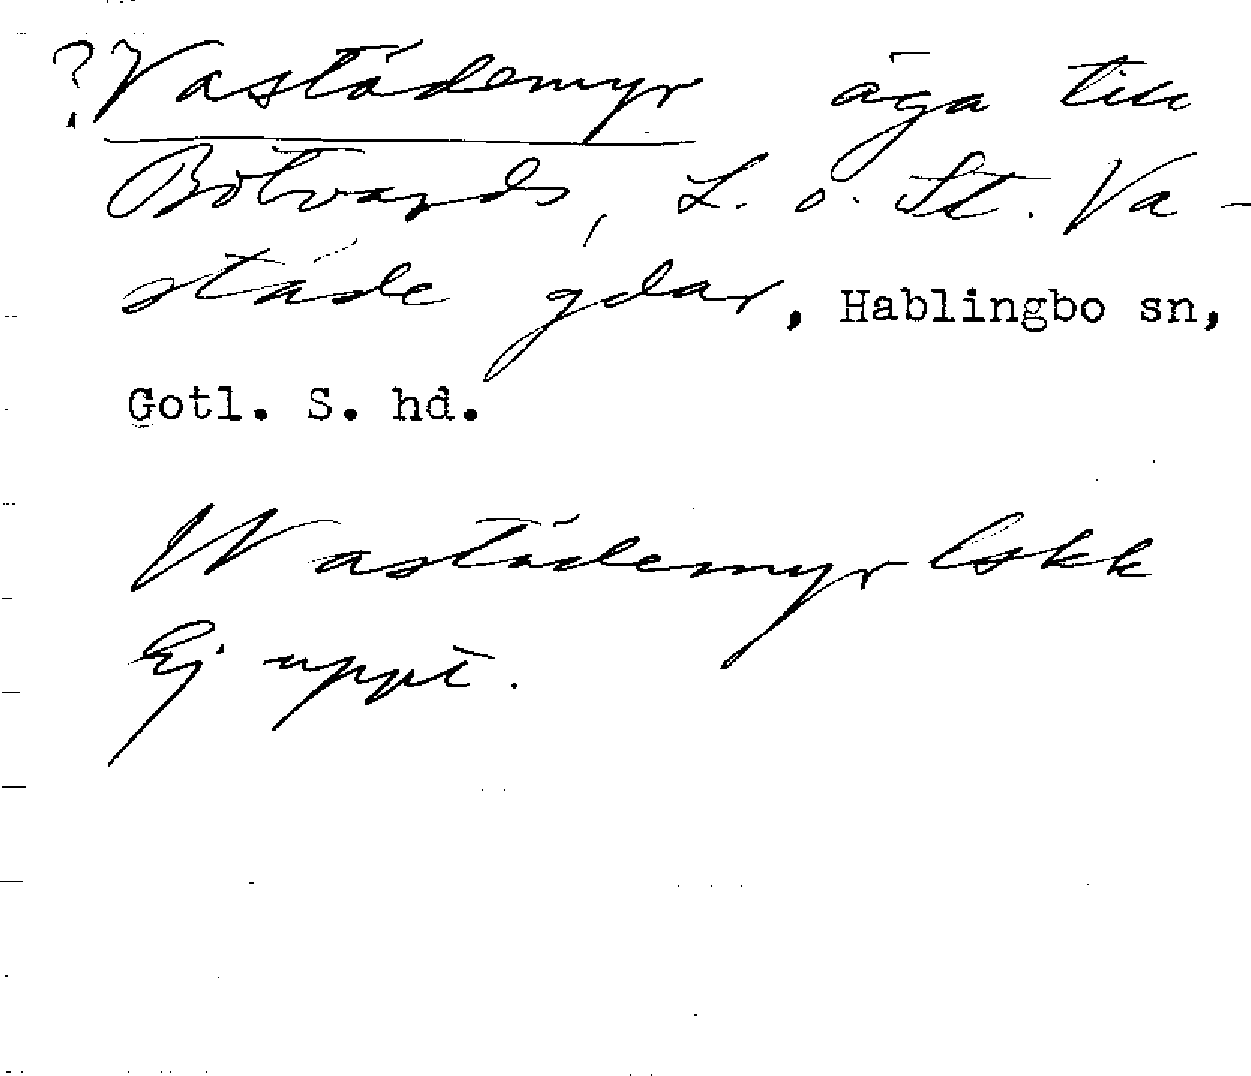 ?Vastädemyr äga till
Botvards, L. o. St. Va-
städe gdar, Hablingbo sn,
Gotl. S. hd.
Wastädemyr lskk
Ej uppt.